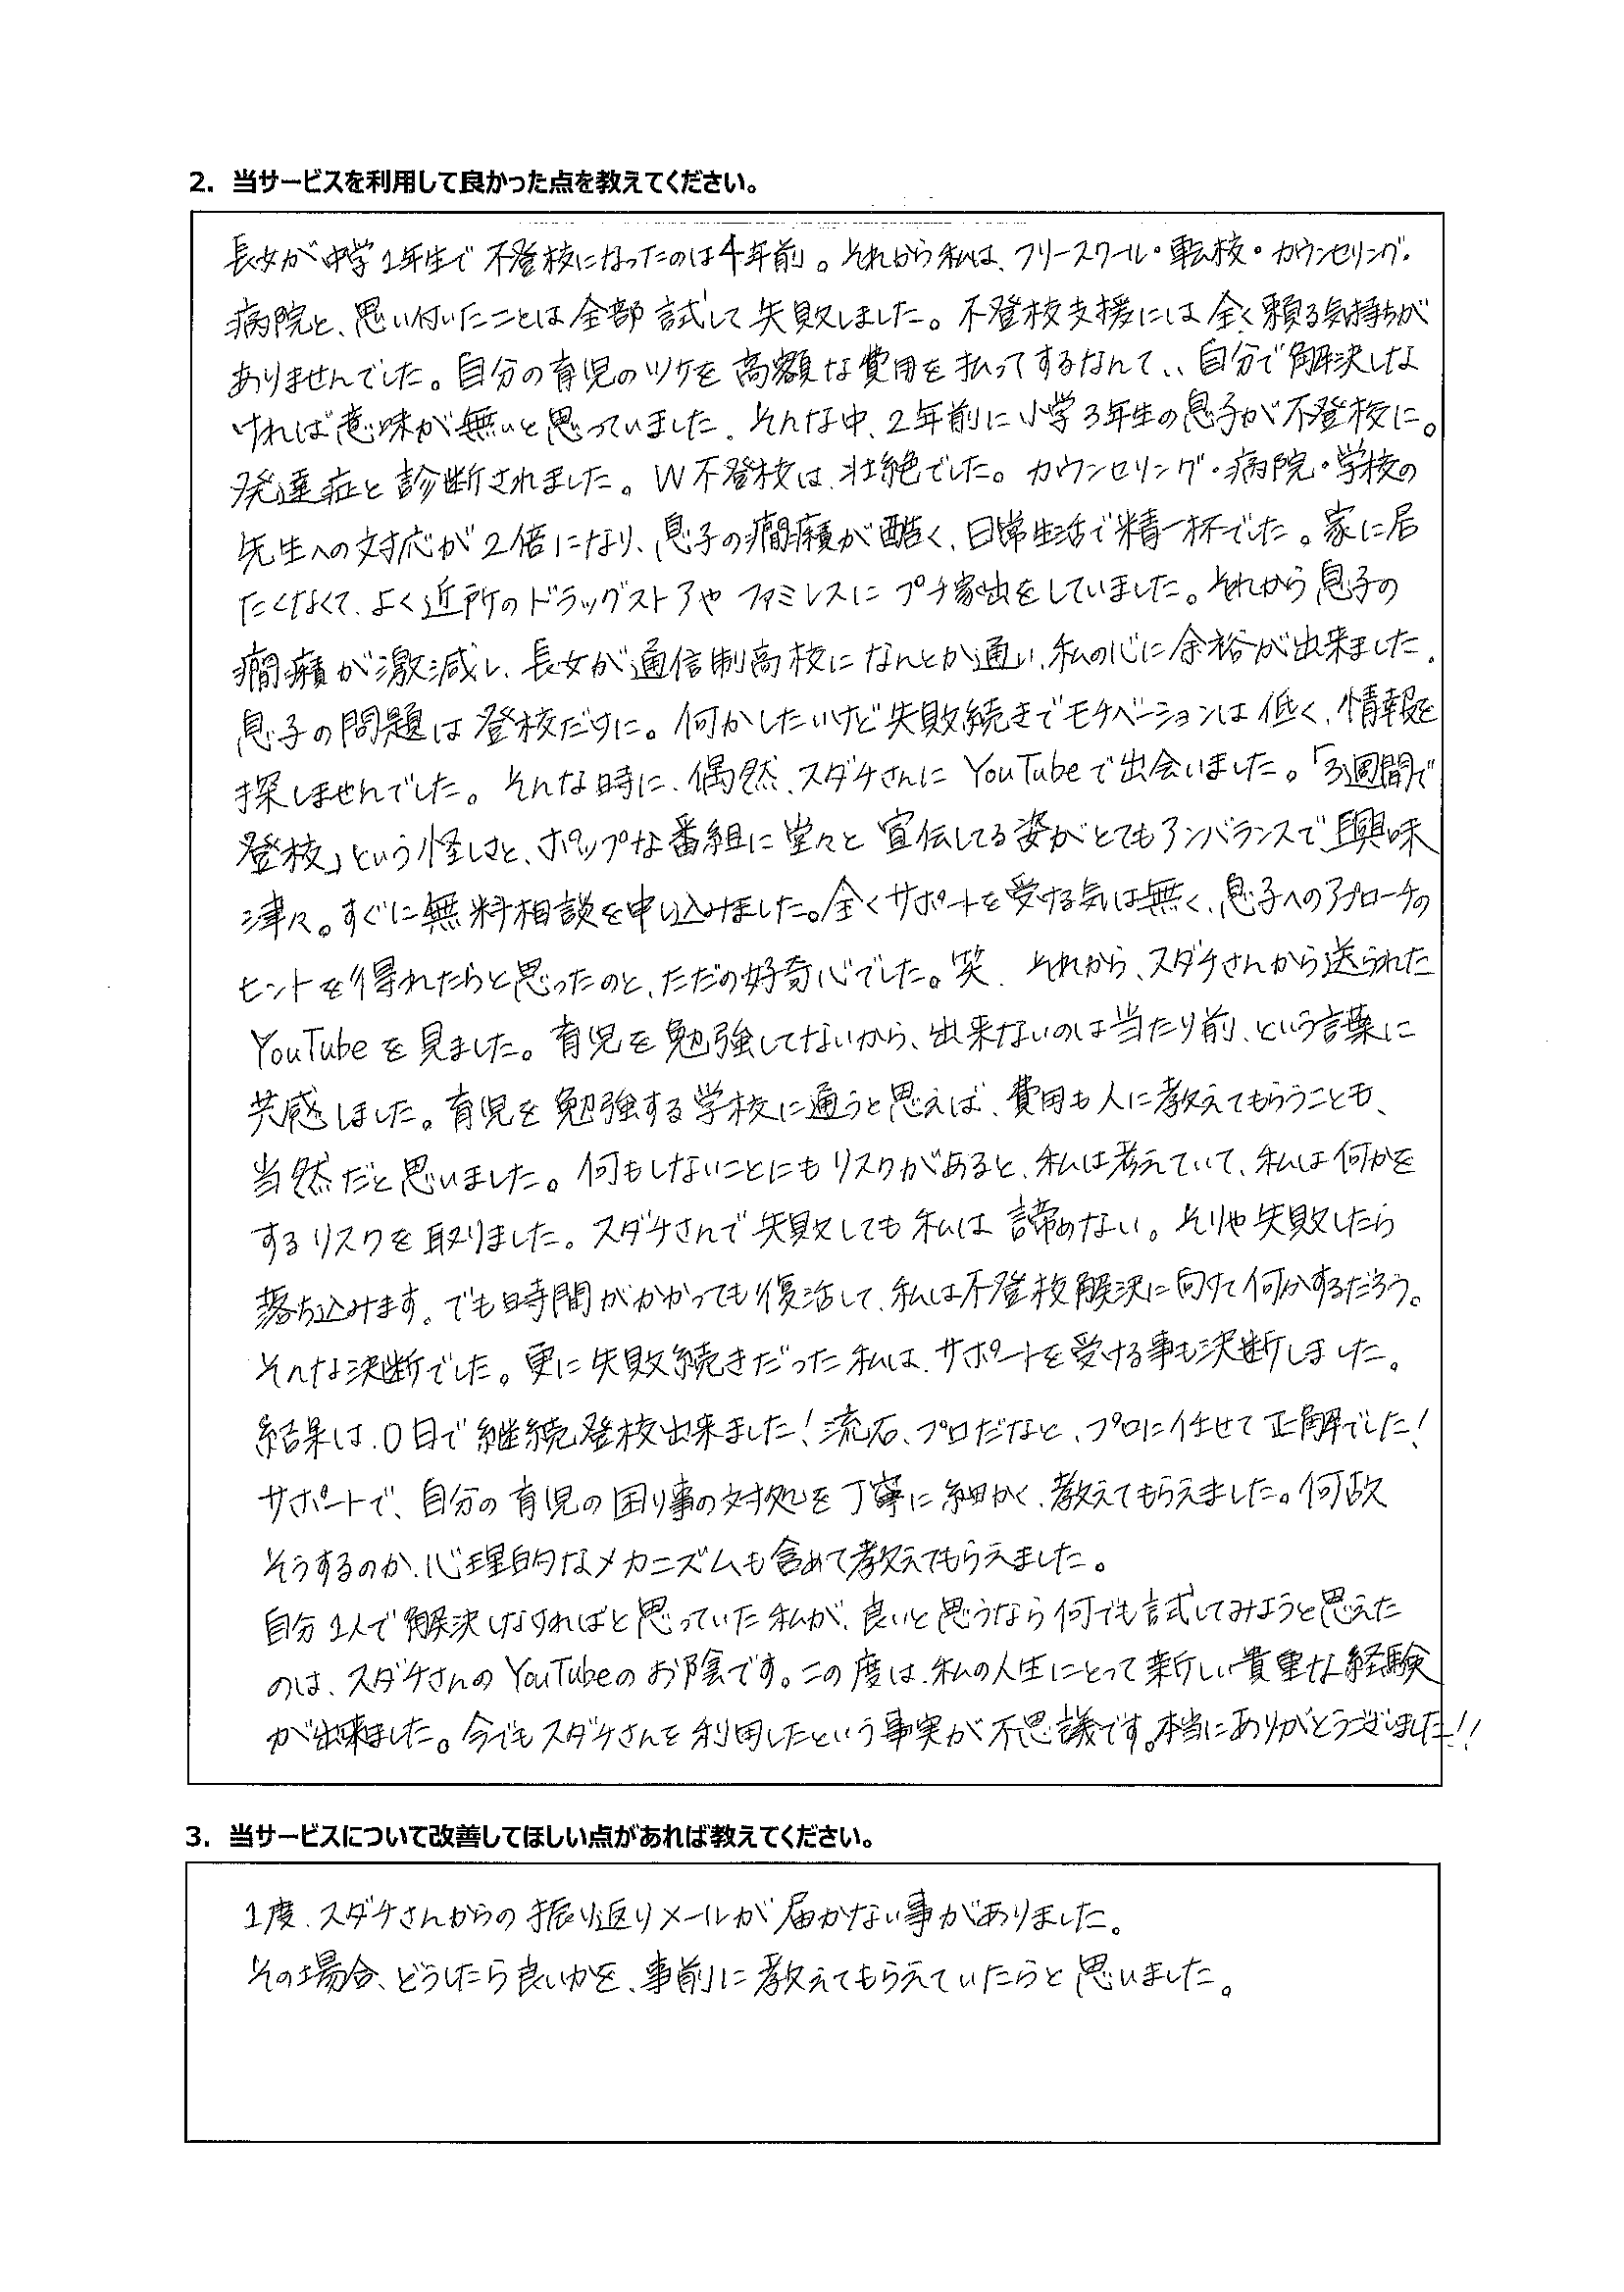 2. 当サービスを利用して良かった点を教えてください。
長女が中学1年生で不登校になったのは4年前。それから私は、フリースクール・転校・カウンセリング・
病院と、思い付いたことは全部試して失敗しました。不登校支援には全く頼る気持ちが
ありませんでした。自分の育児のツケを高額な費用を払ってするなんて、、自分で解決しな
ければ意味が無いと思っていました。そんな中、2年前に小学3年生の息子が不登校に。
発達症と診断されました。W不登校は、壮絶でした。カウンセリング・病院・学校の
先生への対応が2倍になり、息子の癇癪が酷く、日常生活で精一杯でした。家に居
たくなくて、よく近所のドラッグストアやファミレスにプチ家出をしていました。それから息子の
癇癪が激減し、長女が通信制高校になんとか通い、私の心に余裕が出来ました。
息子の問題は登校だけに。何かしたいけど失敗続きでモチベーションは低く、情報を
探しませんでした。そんな時に、偶然、スダチさんにYouTubeで出会いました。「3週間で
登校」という怪しさと、ポップな番組に堂々と宣伝してる姿がとてもアンバランスで、興味
津々。すぐに無料相談を申し込みました。全くサポートを受ける気は無く、息子へのアプローチの
ヒントを得れたらと思ったのと、ただの好奇心でした。笑 それから、スダチさんから送られた
YouTubeを見ました。育児を勉強してないから、出来ないのは当たり前、という言葉に
共感しました。育児を勉強する学校に通うと思えば、費用も人に教えてもらうことも、
当然だと思いました。何もしないことにもリスクがあると、私は考えていて、私は何かを
するリスクを取りました。スダチさんで失敗しても私は諦めない。そりゃ失敗したら
落ち込みます。でも時間がかかっても復活して、私は不登校解決に向けて何かするだろう。
そんな決断でした。更に失敗続きだった私は、サポートを受ける事も決断しました。
結果は、0日で継続登校出来ました!流石、プロだなと、プロに任せて正解でした!
サポートで、自分の育児の困り事の対処を丁寧に細かく、教えてもらえました。何故
そうするのか、心理的なメカニズムも含めて教えてもらえました。
自分1人で解決しなければと思っていた私が、良いと思うなら何でも試してみようと思えた
のは、スダチさんのYouTubeのお陰です。この度は、私の人生にとって新しい貴重な経験
が出来ました。今でもスダチさんを利用したという事実が不思議です。本当にありがとうございました!!
3. 当サービスについて改善してほしい点があれば教えてください。
1度、スダチさんからの振り返りメールが届かない事がありました。
その場合、どうしたら良いかを、事前に教えてもらえていたらと思いました。